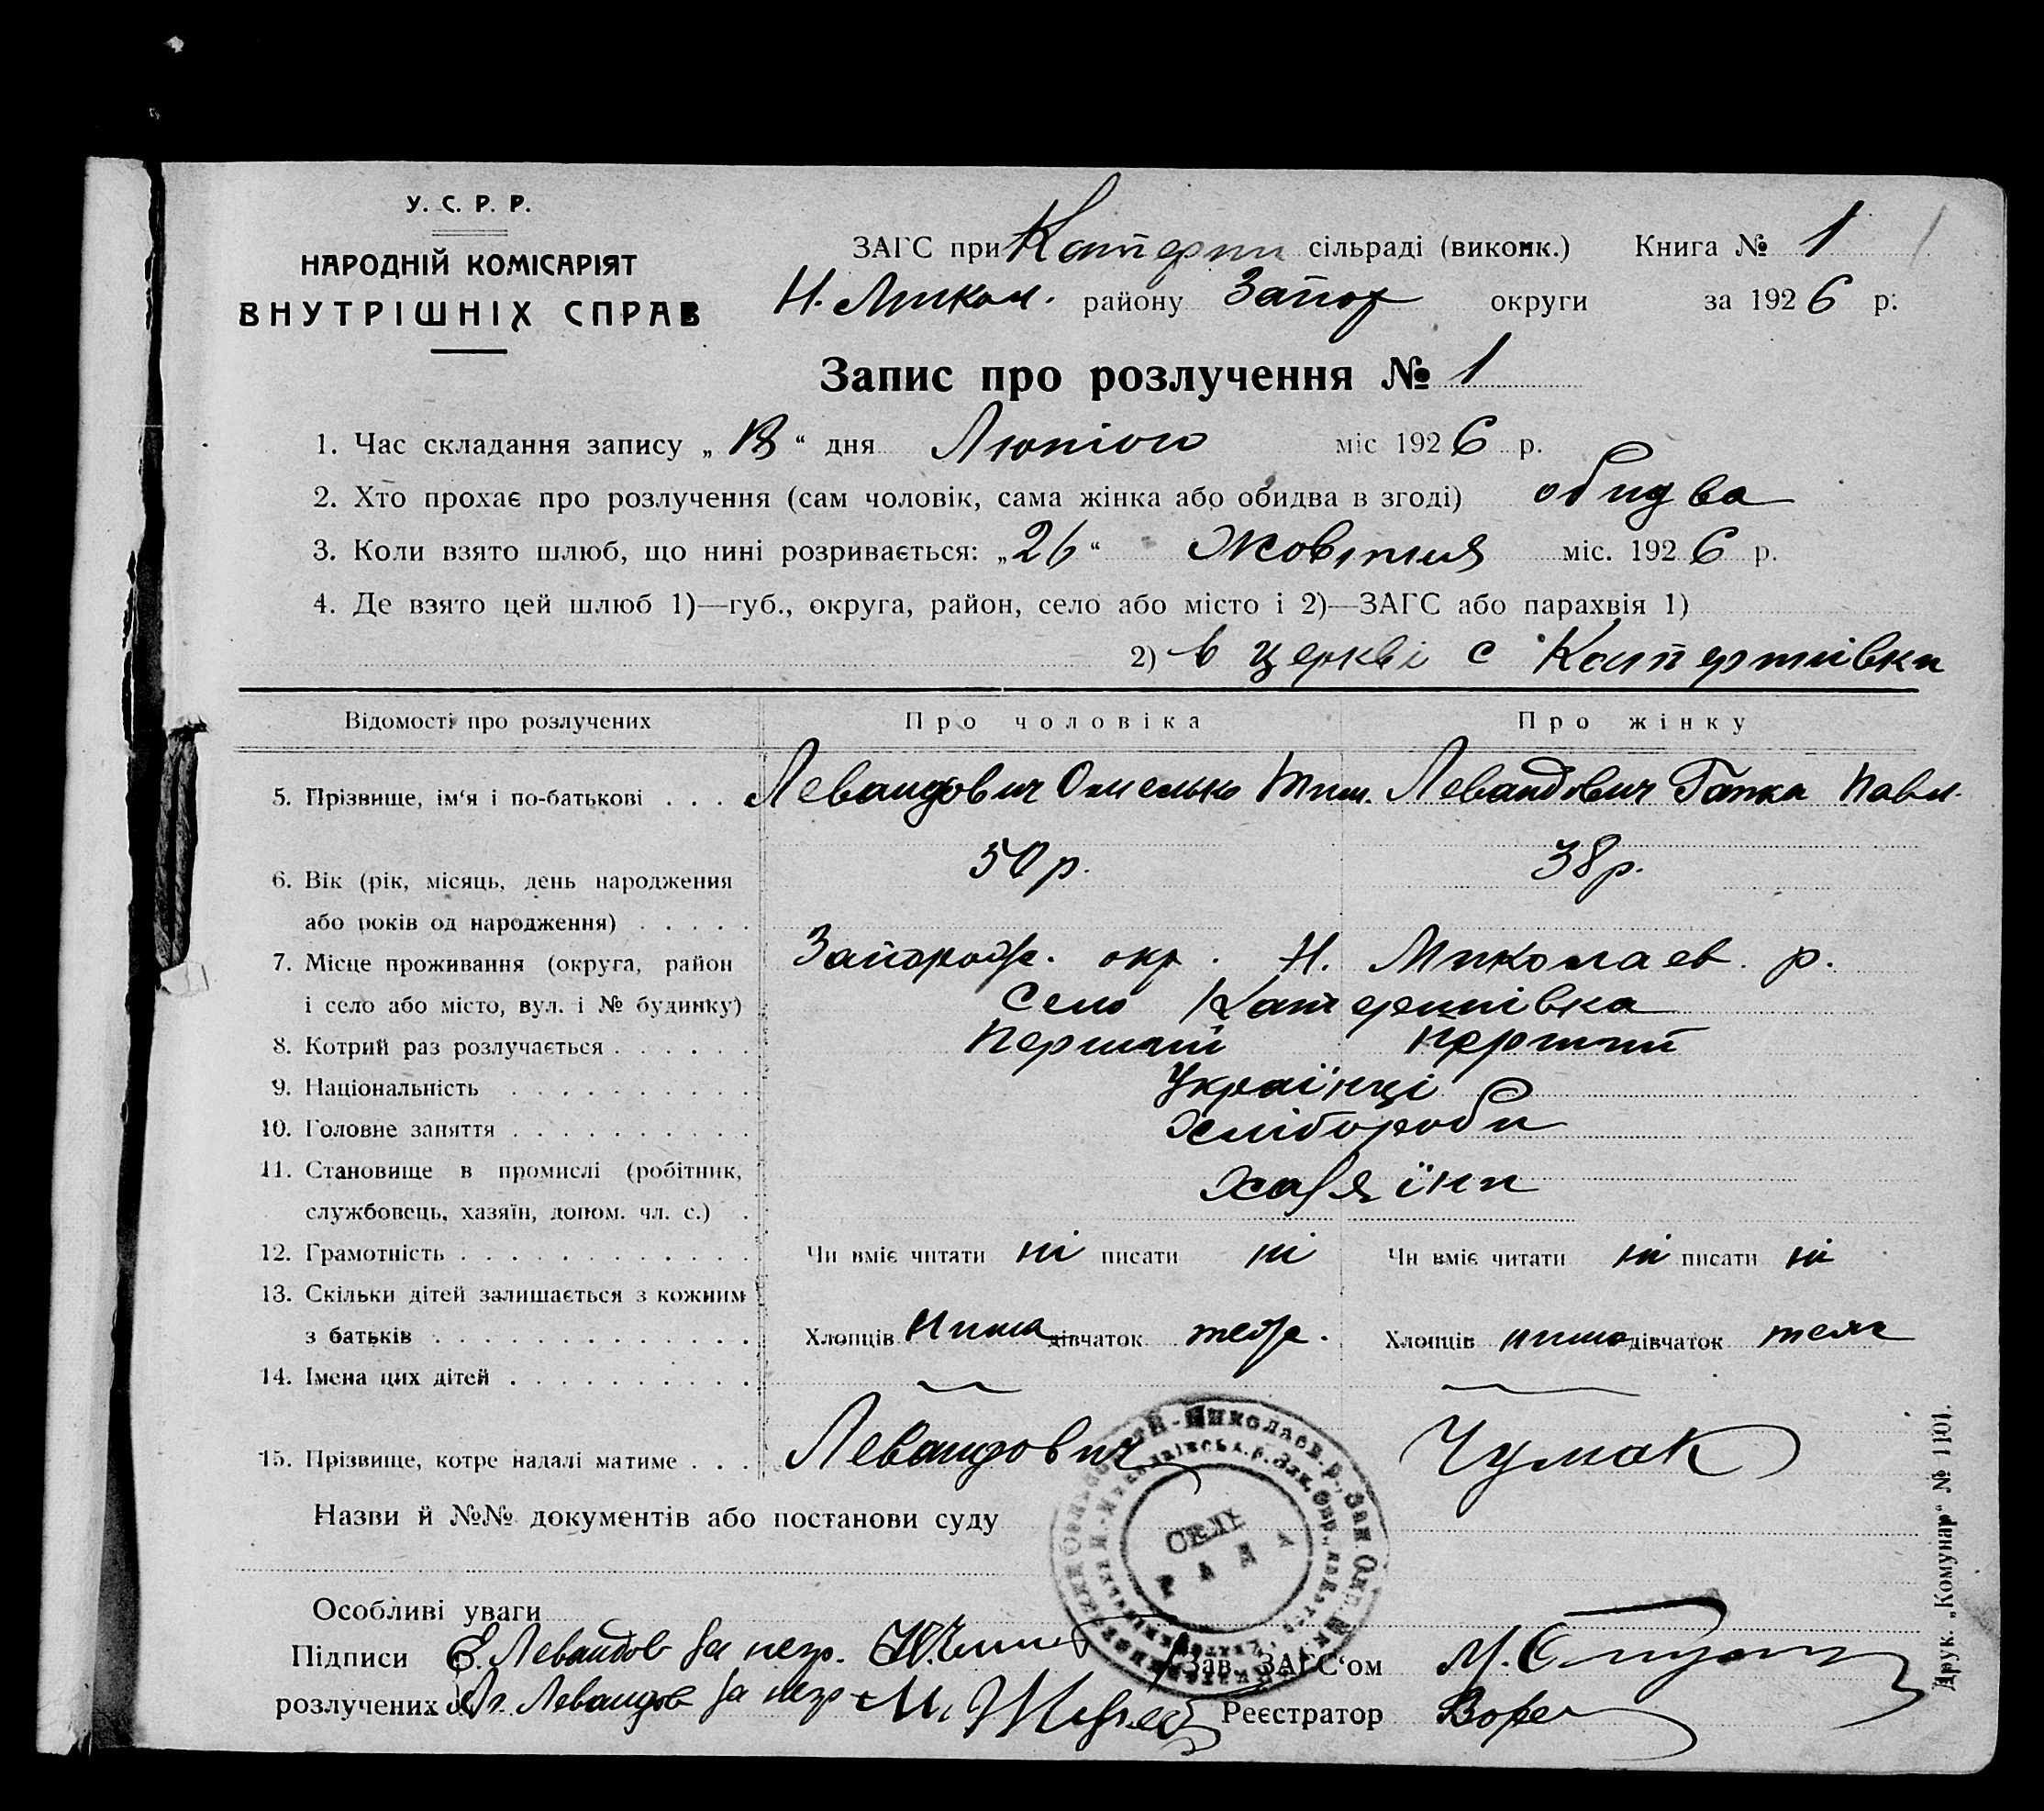 У. С. Р. Р.
НАРОДНІЙ КОМІСАРІЯТ
ВНУТРІШНІХ СПРАВ
ЗАГС при Катерин сільраді (виконк.) Книга № 1
Н. Микол. району Запор округи за 1926 р.
Запис про розлучення № 1
1. Час складання запису „ 18 “ дня Лютого міс 1926 р.
2. Хто прохає про розлучення (сам чоловік, сама жінка або обидва в згоді) обидва
3. Коли взято шлюб, що нині розривається: „26“ Жовтня міс. 1926 р.
4. Де взято цей шлюб 1)—губ., округа, район, село або місто і 2)—ЗАГС або парахвія 1)
2) в церкві с Катеринівки
Відомості про розлучених Про чоловіка Про жінку
5. Прізвище, ім‘я і по-батькові . . . Левандович Омелько Тим. Левандович Гапка Павл.
50 р. 38 р.
6. Вік (рік, місяць, день народження
або років од народження) . . . . .
7. Місце проживання (округа, район Запорожж. окр. Н. Миколаев. р.
і село або місто, вул. і № будинку) Село Катеринівка
8. Котрий раз розлучається . . . . . . Перший Перший
9. Національність . . . . . . . . . . Українці
10. Головне заняття . . . . . . . . . Хлібороби
11. Становище в промислі (робітник, Хазяїни
службовець, хазяїн, допом. чл. с.) .
12. Грамотність . . . . . . . . . . . Чи вміє читати ні писати ні Чи вміє читати ні писати ні
13. Скільки дітей залишається з кожним
з батьків . . . . . . . . . . . . . Хлопців Нима дівчаток теж. Хлопців нима дівчаток теж
14. Імена цих дітей . . . . . . . . .
15. Прізвище, котре надалі матиме . . . Левандович Чумак
Назви й №№ документів або постанови суду
СЕЛЬ
РАДА
Особливі уваги
Підписи Е. Левандов за негр. Зав. ЗАГС‘ом
розлучених Левандов за негр Реєстратор
Друк. „Комунар“ № 1101.